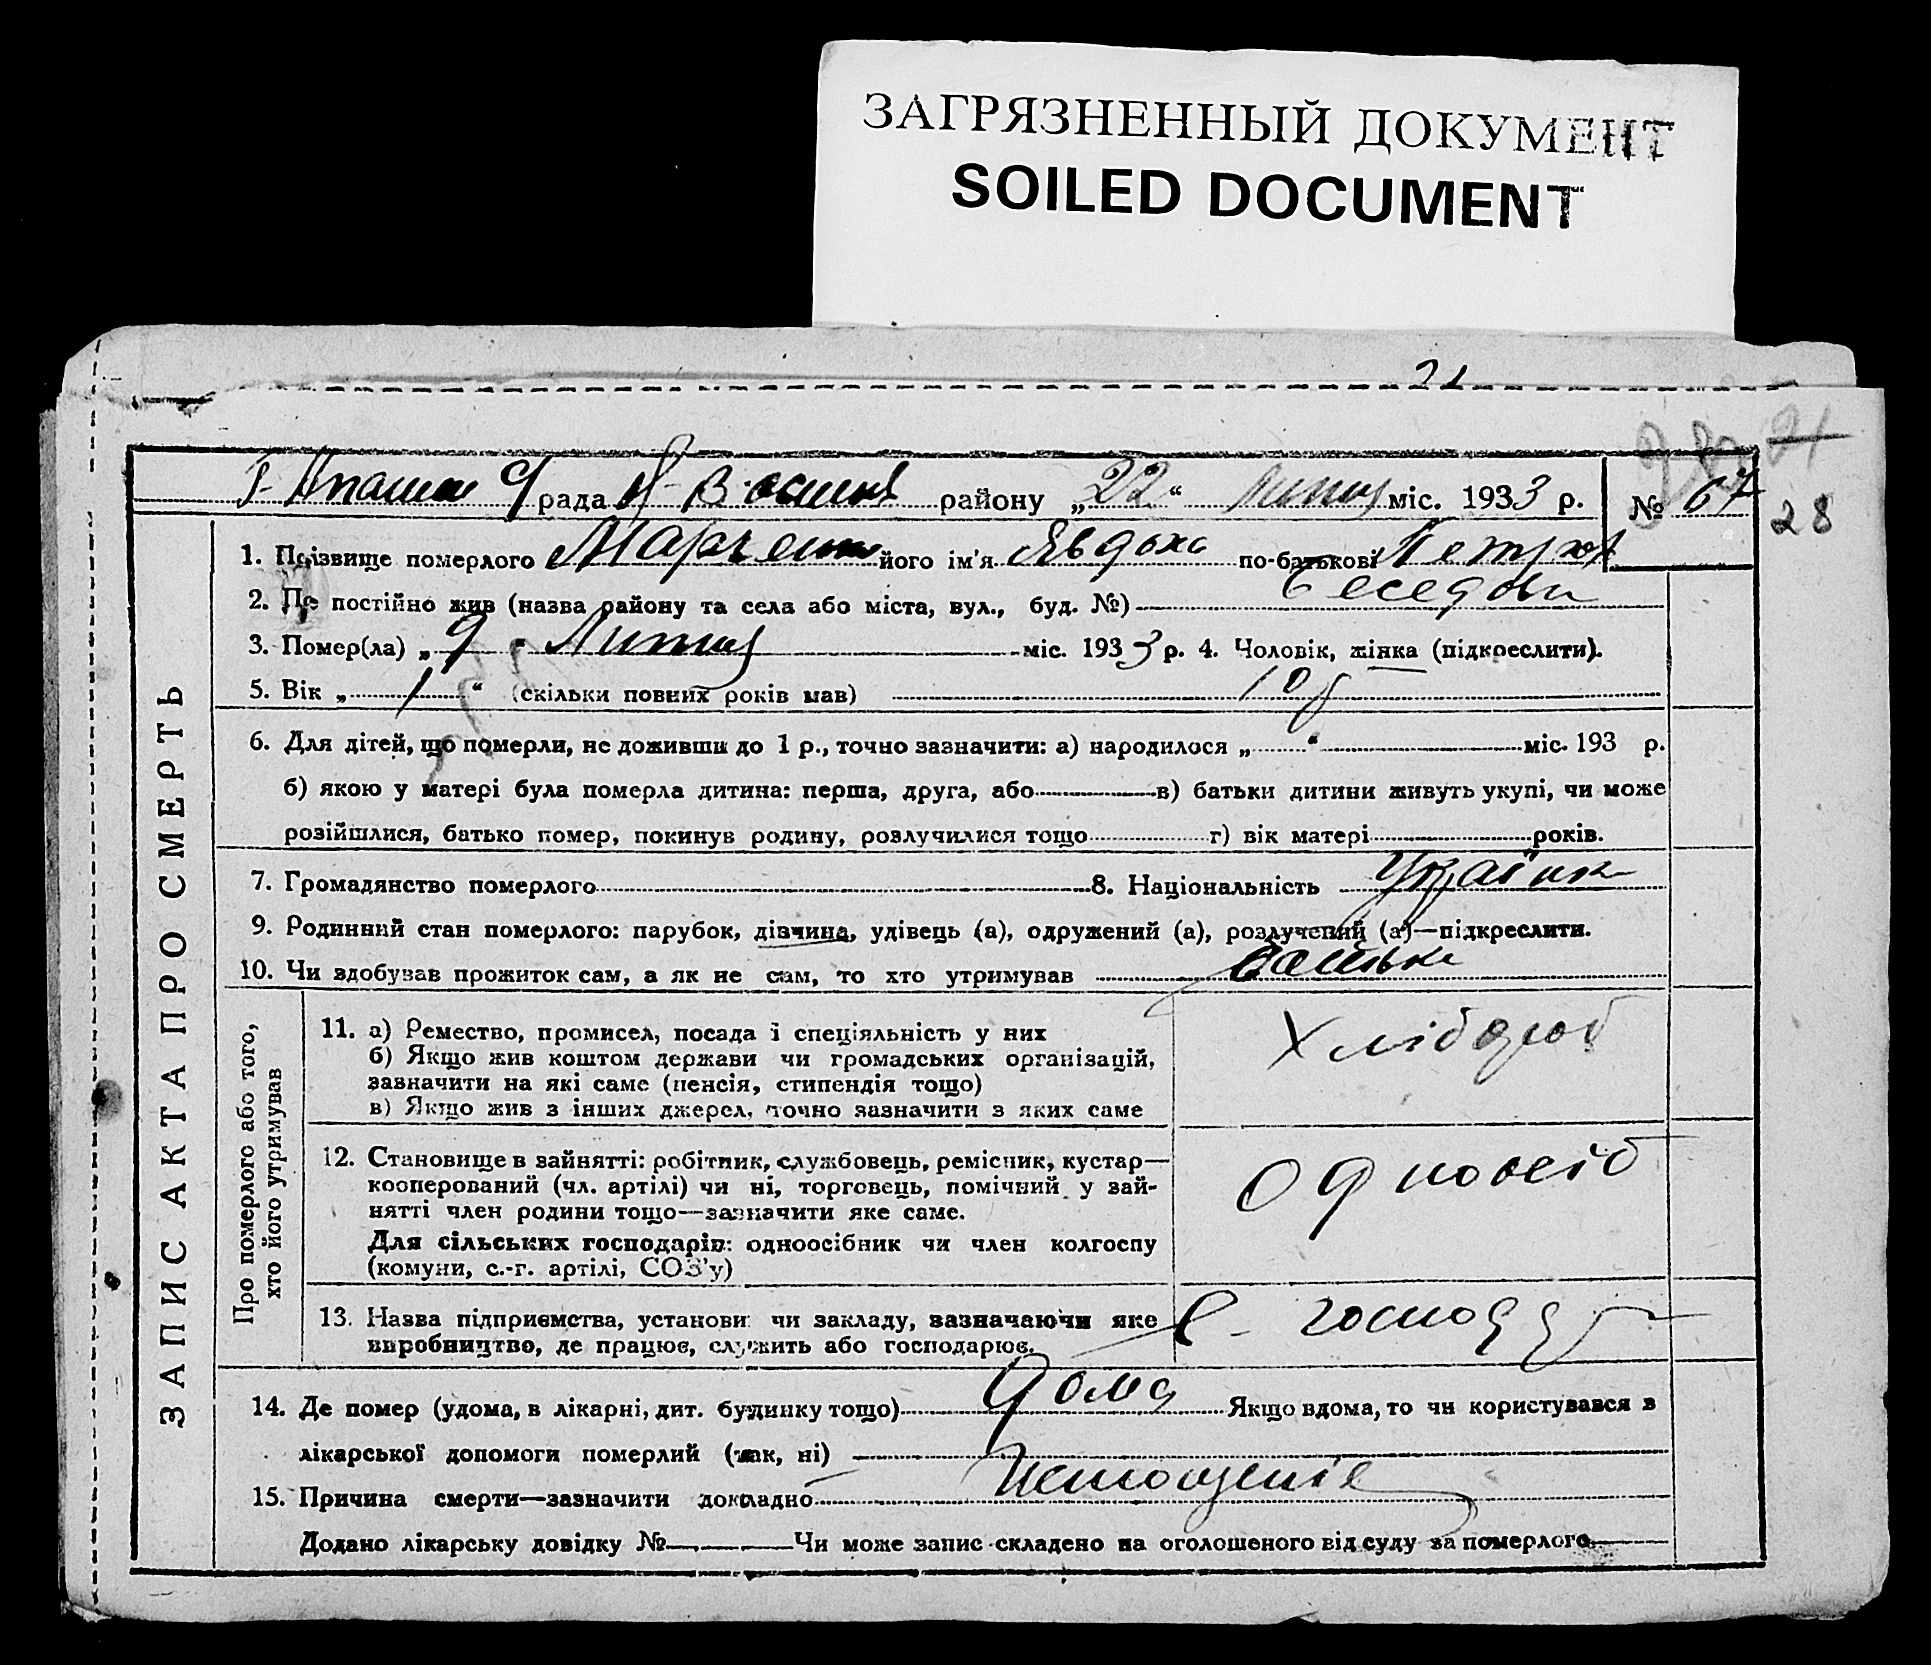 ЗАГРЯЗНЕННЫЙ ДОКУМЕНТ
SOILED DOCUMENT
21
28
рада району „22“ Липня міс. 1933 р. № 67
ЗАПИС АКТА ПРО СМЕРТЬ
1. Прізвище померлого Марченко його ім'я Явдоха по-батькові Петров
2. Де постійно жив (назва району та села або міста, вул., буд. №) Беседовка
3. Помер(ла) „9 Липня міс. 1933 р. 4. Чоловік, жінка (підкреслити).
5. Вік „ 1 “ (скільки повних років мав) 1 рб
6. Для дітей, що померли, не доживши до 1 р., точно зазначити: а) народилося „ “ міс. 193 р.
б) якою у матері була померла дитина: перша, друга, або в) батьки дитини живуть укупі, чи може
розійшлися, батько помер, покинув родину, розлучилися тощо г) вік матері років.
7. Громадянство померлого 8. Національність Українк
9. Родинний стан померлого: парубок, дівчина, удівець (а), одружений (а), розлучений (а)—підкреслити.
10. Чи здобував прожиток сам, а як не сам, то хто утримував батьки
Про померлого або того,
хто його утримував
11. а) Ремество, промисел, посада і спеціяльність у них
б) Якщо жив коштом держави чи громадських організацій,
зазначити на які саме (пенсія, стипендія тощо)
в) Якщо жив з інших джерел, точно зазначити з яких саме
Хлібороб
12. Становище в зайнятті: робітник, службовець, ремісник, кустар—
кооперований (чл. артілі) чи ні, торговець, помічний у зай-
нятті член родини тощо—зазначити яке саме.
Для сільських господарів: одноосібник чи член колгоспу
(комуни, с.-г. артілі, СОЗ'у)
Одноосіб
13. Назва підприємства, установи чи закладу, зазначаючи яке
виробництво, де працює, служить або господарює.
14. Де помер (удома, в лікарні, дит. будинку тощо) дома Якщо вдома, то чи користувався в
лікарської допомоги померлий (так, ні)
15. Причина смерти—зазначити докладно Истощеніе
Додано лікарську довідку № Чи може запис складено на оголошеного від суду за померлого